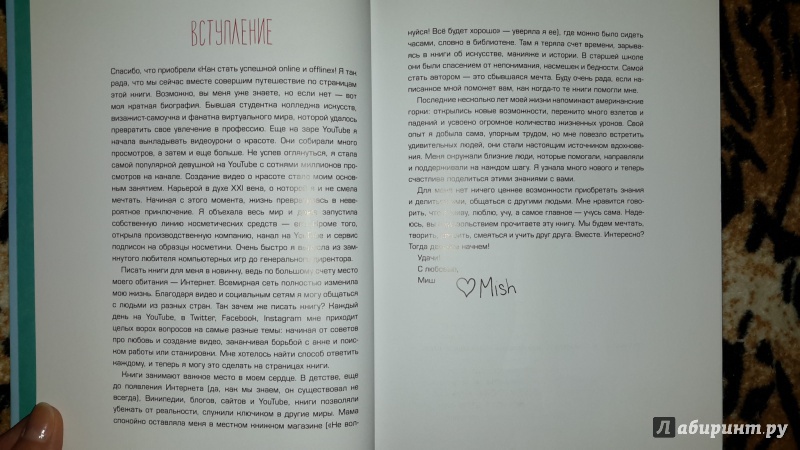 ВСТУПЛЕНИЕ
Спасибо, что приобрели «Как стать успешной online и offline»! Я так
рада, что мы сейчас вместе совершим путешествие по страницам
этой книги. Возможно, вы меня уже знаете, но если нет — вот
моя краткая биография. Бывшая студентка колледжа искусств,
визажист-самоучка и фанатка виртуального мира, которой удалось
превратить свое увлечение в профессию. Еще на заре YouTube я
начала выкладывать видеоуроки о красоте. Они собирали много
просмотров, а затем и еще больше. Не успев оглянуться, я стала
самой популярной девушкой на YouTube с сотнями миллионов про-
смотров на канале. Создание видео о красоте стало моим основ-
ным занятием. Карьерой в духе XXI века, о которой я и не смела
мечтать. Начиная с этого момента, жизнь превратилась в неве-
роятное приключение. Я объехала весь мир и даже запустила
собственную линию косметических средств — em. Кроме того,
открыла производственную компанию, канал на YouTube и сервис
подписок на образцы косметики. Очень быстро я выросла из зам-
кнутого любителя компьютерных игр до генерального директора.
Писать книги для меня в новинку, ведь по большому счету место
моего обитания — Интернет. Всемирная сеть полностью изменила
мою жизнь. Благодаря видео и социальным сетям я могу общаться
с людьми из разных стран. Так зачем же писать книгу? Каждый
день на YouTube, в Twitter, Facebook, Instagram мне приходит
целых ворох вопросов на самые разные темы: начиная от советов
про любовь и создание видео, заканчивая борьбой с акне и поис-
ком работы или стажировки. Мне хотелось найти способ ответить
каждому, и теперь я могу это сделать на страницах книги.
Книги занимают важное место в моем сердце. В детстве, еще
до появления Интернета (да, как мы знаем, он существовал не
всегда), Википедии, блогов, сайтов и YouTube, книги позволяли
убежать от реальности, служили ключиком в другие миры. Мама
спокойно оставляла меня в местном книжном магазине («Не вол-
нуйся! Всё будет хорошо» — уверяла я ее), где можно было сидеть
часами, словно в библиотеке. Там я теряла счет времени, зарыва-
ясь в книги об искусстве, макияже и истории. В старшей школе
они были спасением от непонимания, насмешек и бедности. Самой
стать автором — это сбывшаяся мечта. Буду очень рада, если на-
писанное мной поможет вам, как когда-то те книги помогли мне.
Последние несколько лет моей жизни напоминают американские
горки: открылись новые возможности, пережито много взлетов и
падений и усвоено огромное количество жизненных уроков. Свой
опыт я добыла сама, упорным трудом, но мне повезло встретить
удивительных людей, они стали настоящим источником вдохнове-
ния. Меня окружали близкие люди, которые помогали, направляли
и поддерживали на каждом шагу. Я узнала много нового и теперь
счастлива поделиться этими знаниями с вами.
Для меня нет ничего ценнее возможности приобретать знания
и делиться ими, общаться с другими людьми. Мне нравится гово-
рить, что я живу, люблю, учу, а самое главное — учусь сама. Наде-
юсь, вы с удовольствием прочитаете эту книгу. Мы будем мечтать,
творить, любить, смеяться и учить друг друга. Вместе. Интересно?
Тогда давайте начнем!
Удачи!
С любовью,
Миш
♡Mish
Лабиринт.ру